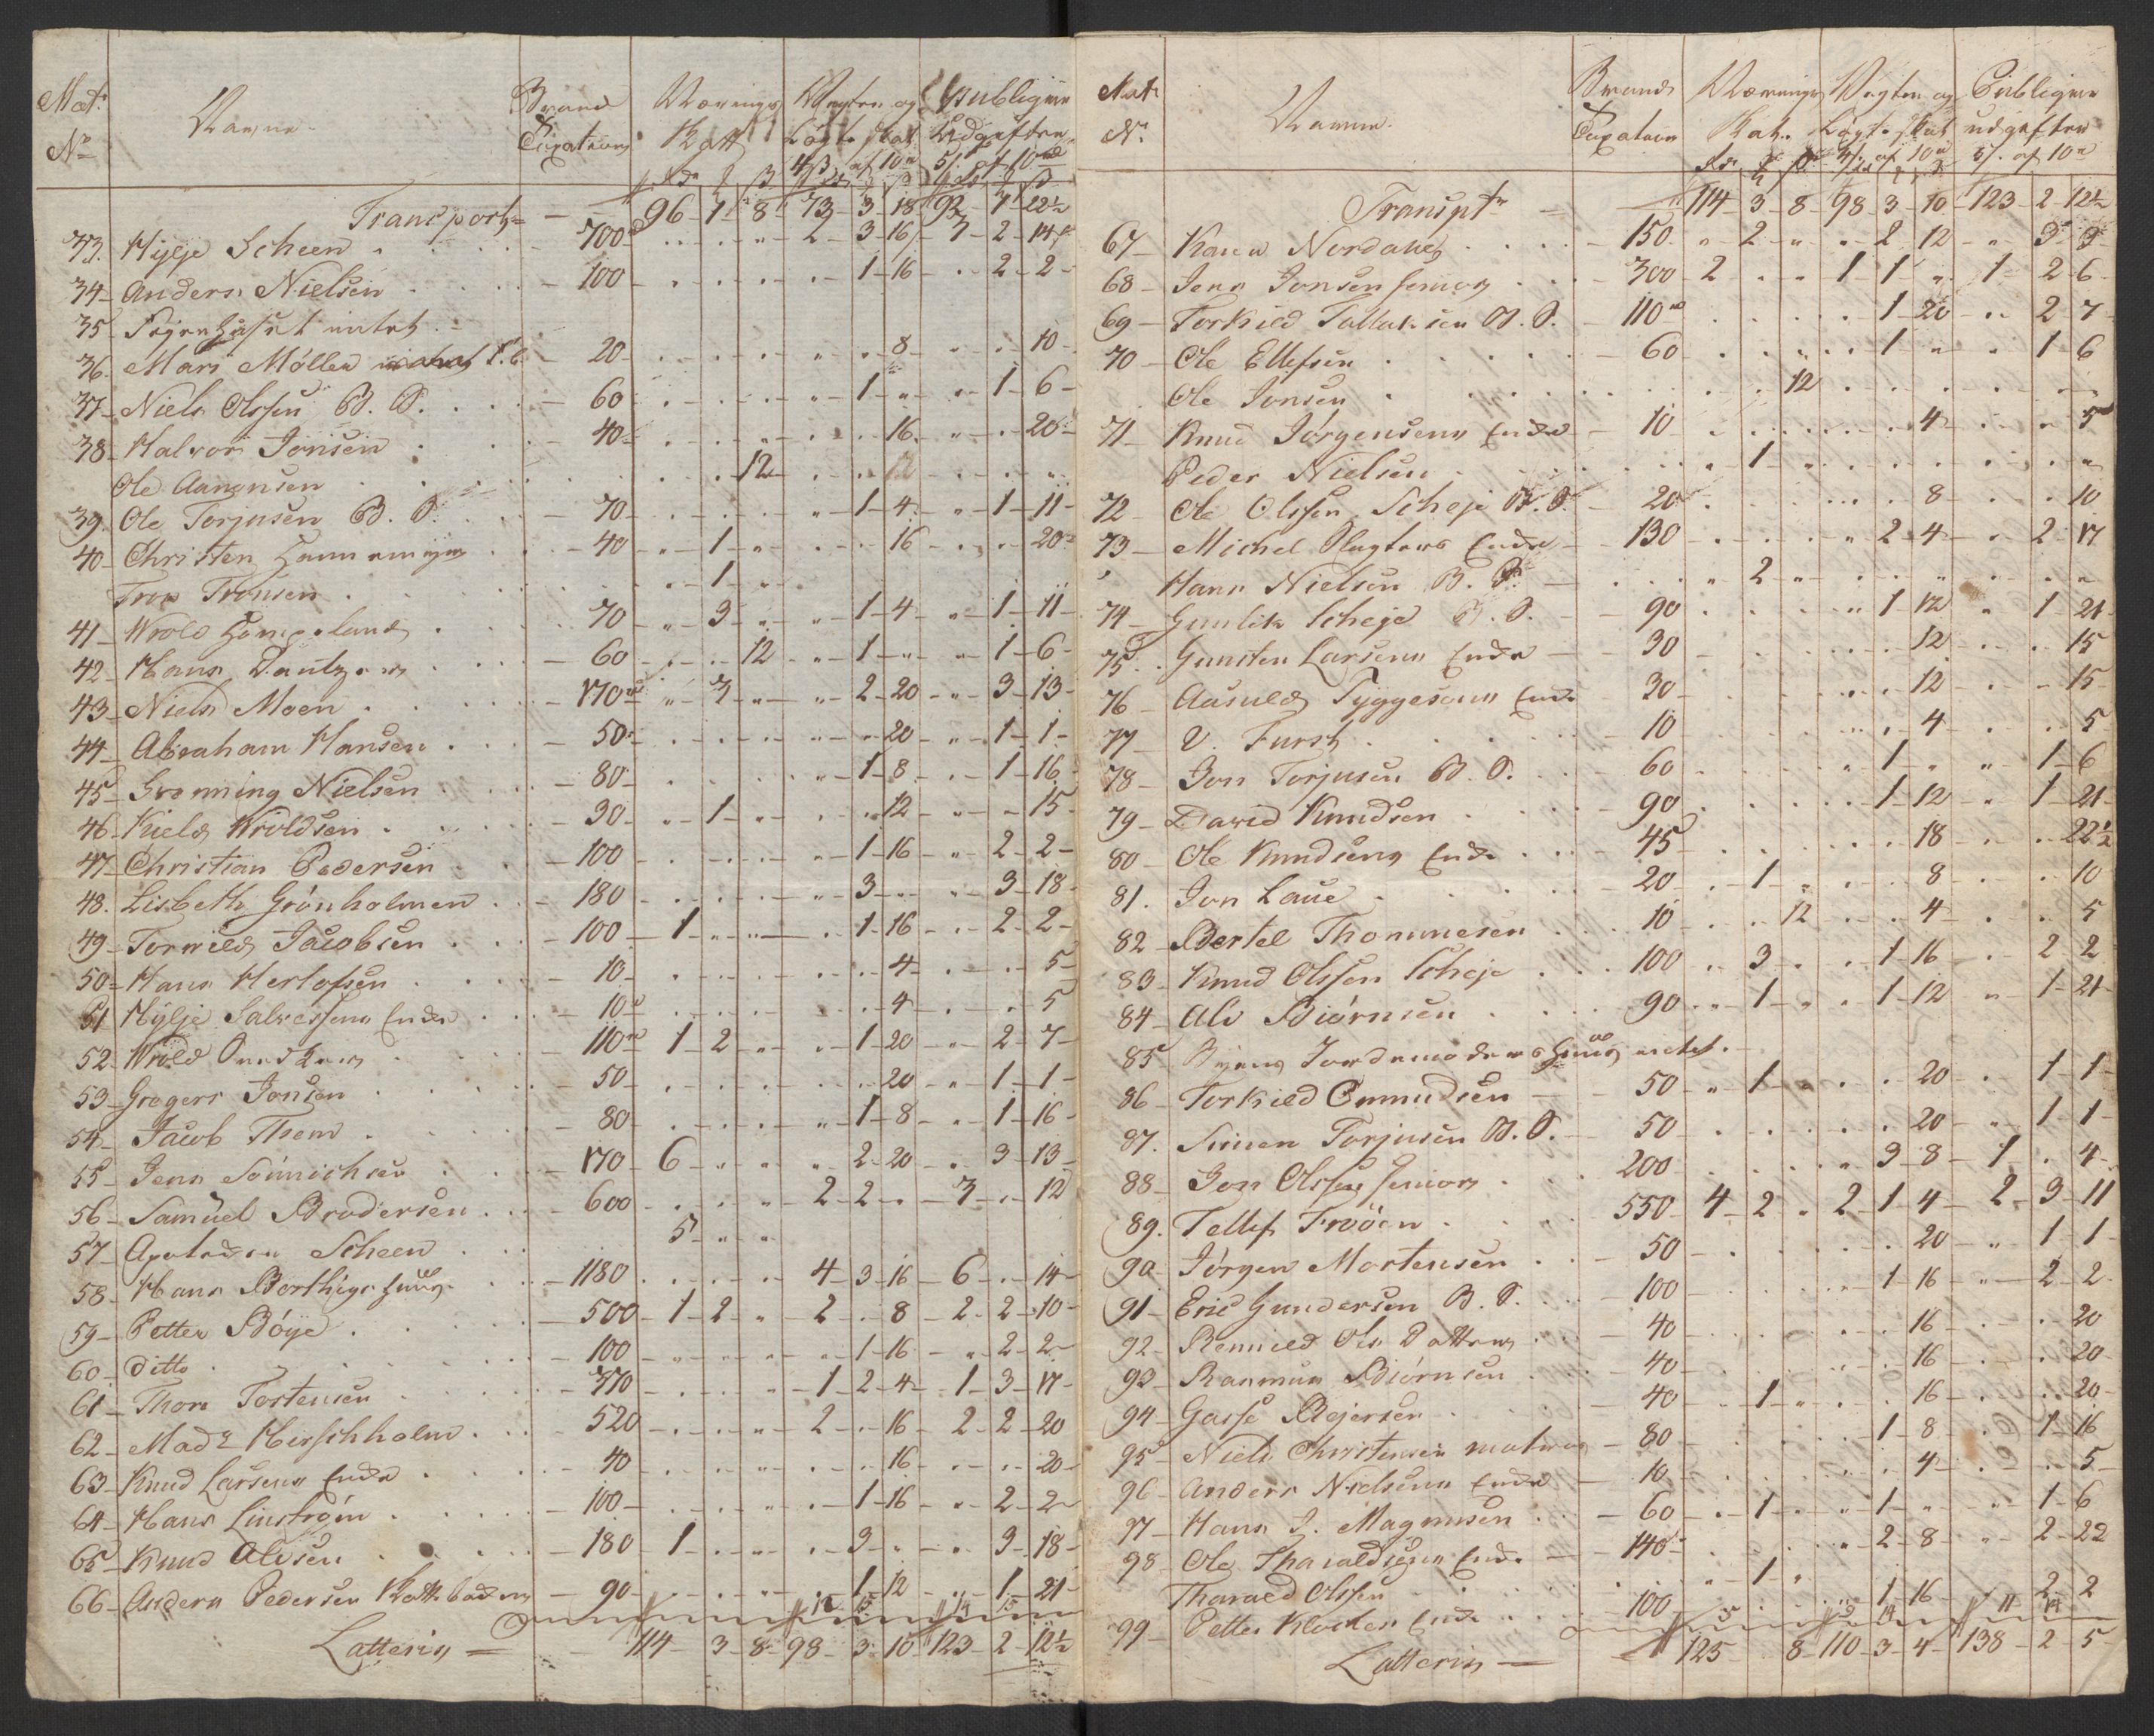 Mat. No Navne Brand Taxation Nærings Skatt Vægter og Løgte skat 4 ß af 10 rd Publiqve Udgifter 5 ß af 10 rd
Transport 96 1 8 73 3 18 92 1 22½
33. Hylje Scheen 700 2 3 16 3 2 14
34 Anders Nielsen 100 1 16 2 2
35
36. Mari Møller 20 8 10
37 Niels Olssen B. S. 60 1 1 6
38 Halvor Jonsen 40 16 20
Ole Aanonsen 12
39. Ole Torjusen B. S. 70 1 4 1 11
40 Christen 40 1 16 20
Tron Tronsen 1
41 Wrold 70 3 1 4 1 11
42. Hans 60 12 1 1 6
43 Niels Moen 170 3 2 20 3 13
44 Abraham Hansen 50 20 1 1
45 Grønning Nielsen 80 1 8 1 16
46 Kield Wroldsen 30 1 12 15
47 Christian Pedersen 100 1 16 2 2
48. Lisbeth Grønholmen 180 3 3 18
49 Torkield Jacobsen 100 1 1 16 2 2
50 Hans Herlofsen 10 4 5
51 Hylje Salvessens Enke 10 4 5
52 Wrold 110 1 2 1 20 2 7
53 Gregers Jonsen 50 20 1 1
54 Jacob Them 80 1 8 1 16
55 Jens Sönnichsen 170 6 2 20 3 13
56 Samuel Brodersen 600 2 2 3 12
57 Apoteker Scheen 5
58 Hans Berthigs Huus 1180 4 3 16 6 14
59 Petter Böye 500 1 2 2 8 2 2 10
60 ditto 100 1 16 2 2
61 Thore Tostensen 370 1 2 4 1 3 17
62 Mad: Herschholm 520 2 16 2 2 20
63 Knud Larsens Enke 40 16 20
64 Hans Linstrøm 100 1 16 2 2
65 Knud Alvsen 180 1 3 3 18
66 Anders Pedersen 90 1 12 1 21
Latteris 114 3 8 98 3 10 123 2 12½
Mat. No. Navne Brand Taxation Nærings Skat Vægter og Løgte skat 4 ß af 10 rd Publiqve udgifter 5 ß af 10 rd
Transpt 114 3 8 98 3 10 123 2 12½
67 Karen Nordahl 150 2 2 12 3 3
68 Jens Jonsen senior 300 2 1 1 1 2 6
69 Torkild Tallaksen B. S. 110 1 20 2 7
70 Ole Ellefsen 60 1 1 6
Ole Jonsen 12
71 Knud Jørgensens Enke 10 4 5
Peder Nielsen 1
72 Ole Olssen Scheje B. S. 20 8 10
73 Michel Slagters Enke 130 2 4 2 17
Hans Nielsen B. S. 2
74 Gunlik Scheje B. S. 90 1 12 1 21
75 Gunsten Larsens Enke 30 12 15
76 Aasuld Tyggesons Enke 30 12 15
77 V. Furst 10 4 5
78 Jon Torjusen B. S. 60 1 1 6
79 David Knudsen 90 1 12 1 21
80 Ole Knudsens Enke 45 18 22½
81. Jon Laue 20 1 8 10
82 Bertel Thommesen 10 12 4 5
83 Knud Olssen Scheje 100 3 1 16 2 2
84 Alv Biørnsen 90 1 1 12 1 21
85 Byens Jordemoders Huus intet
86 Torkild Omundsen 50 1 20 1 1
87. Simen Torjusen B. S. 50 20 1 1
88 Jon Olssen senior 200 3 8 1 4
89. Tellef Trööen 550 4 2 2 1 4 2 3 11
90 Jörgen Mortensen 50 20 1 1
91 Eric Gundersen B. S. 100 1 16 2 2
92 Rennild Ols Datter 40 16 20
93 Rasmus Biörnsen 40 16 20
94 Gasse Rejersen 40 1 16 20
95 Niels Christensen 80 1 8 1 16
96 Anders Nielsens Enke 10 4 5
97 Hans J. Magnusen 60 1 1 1 6
98 Ole Tharaldsens Enke 140 2 8 2 22
Tharald Olssen 1
99 Petter Klockers Enke 100 1 16 2 2
Latteris 125 8 110 3 4 138 2 5